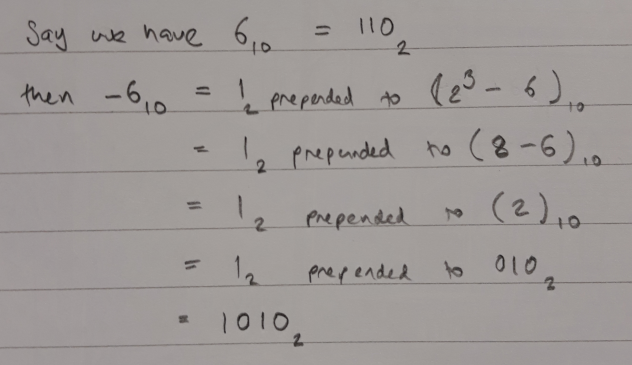 Say we have 6₁₀ = 110₂
then -6₁₀ = 1₂ prepended to (2³ - 6)₁₀
= 1₂ prepended to (8-6)₁₀
= 1₂ prepended to (2)₁₀
= 1₂ prepended to 010₂
= 1010₂